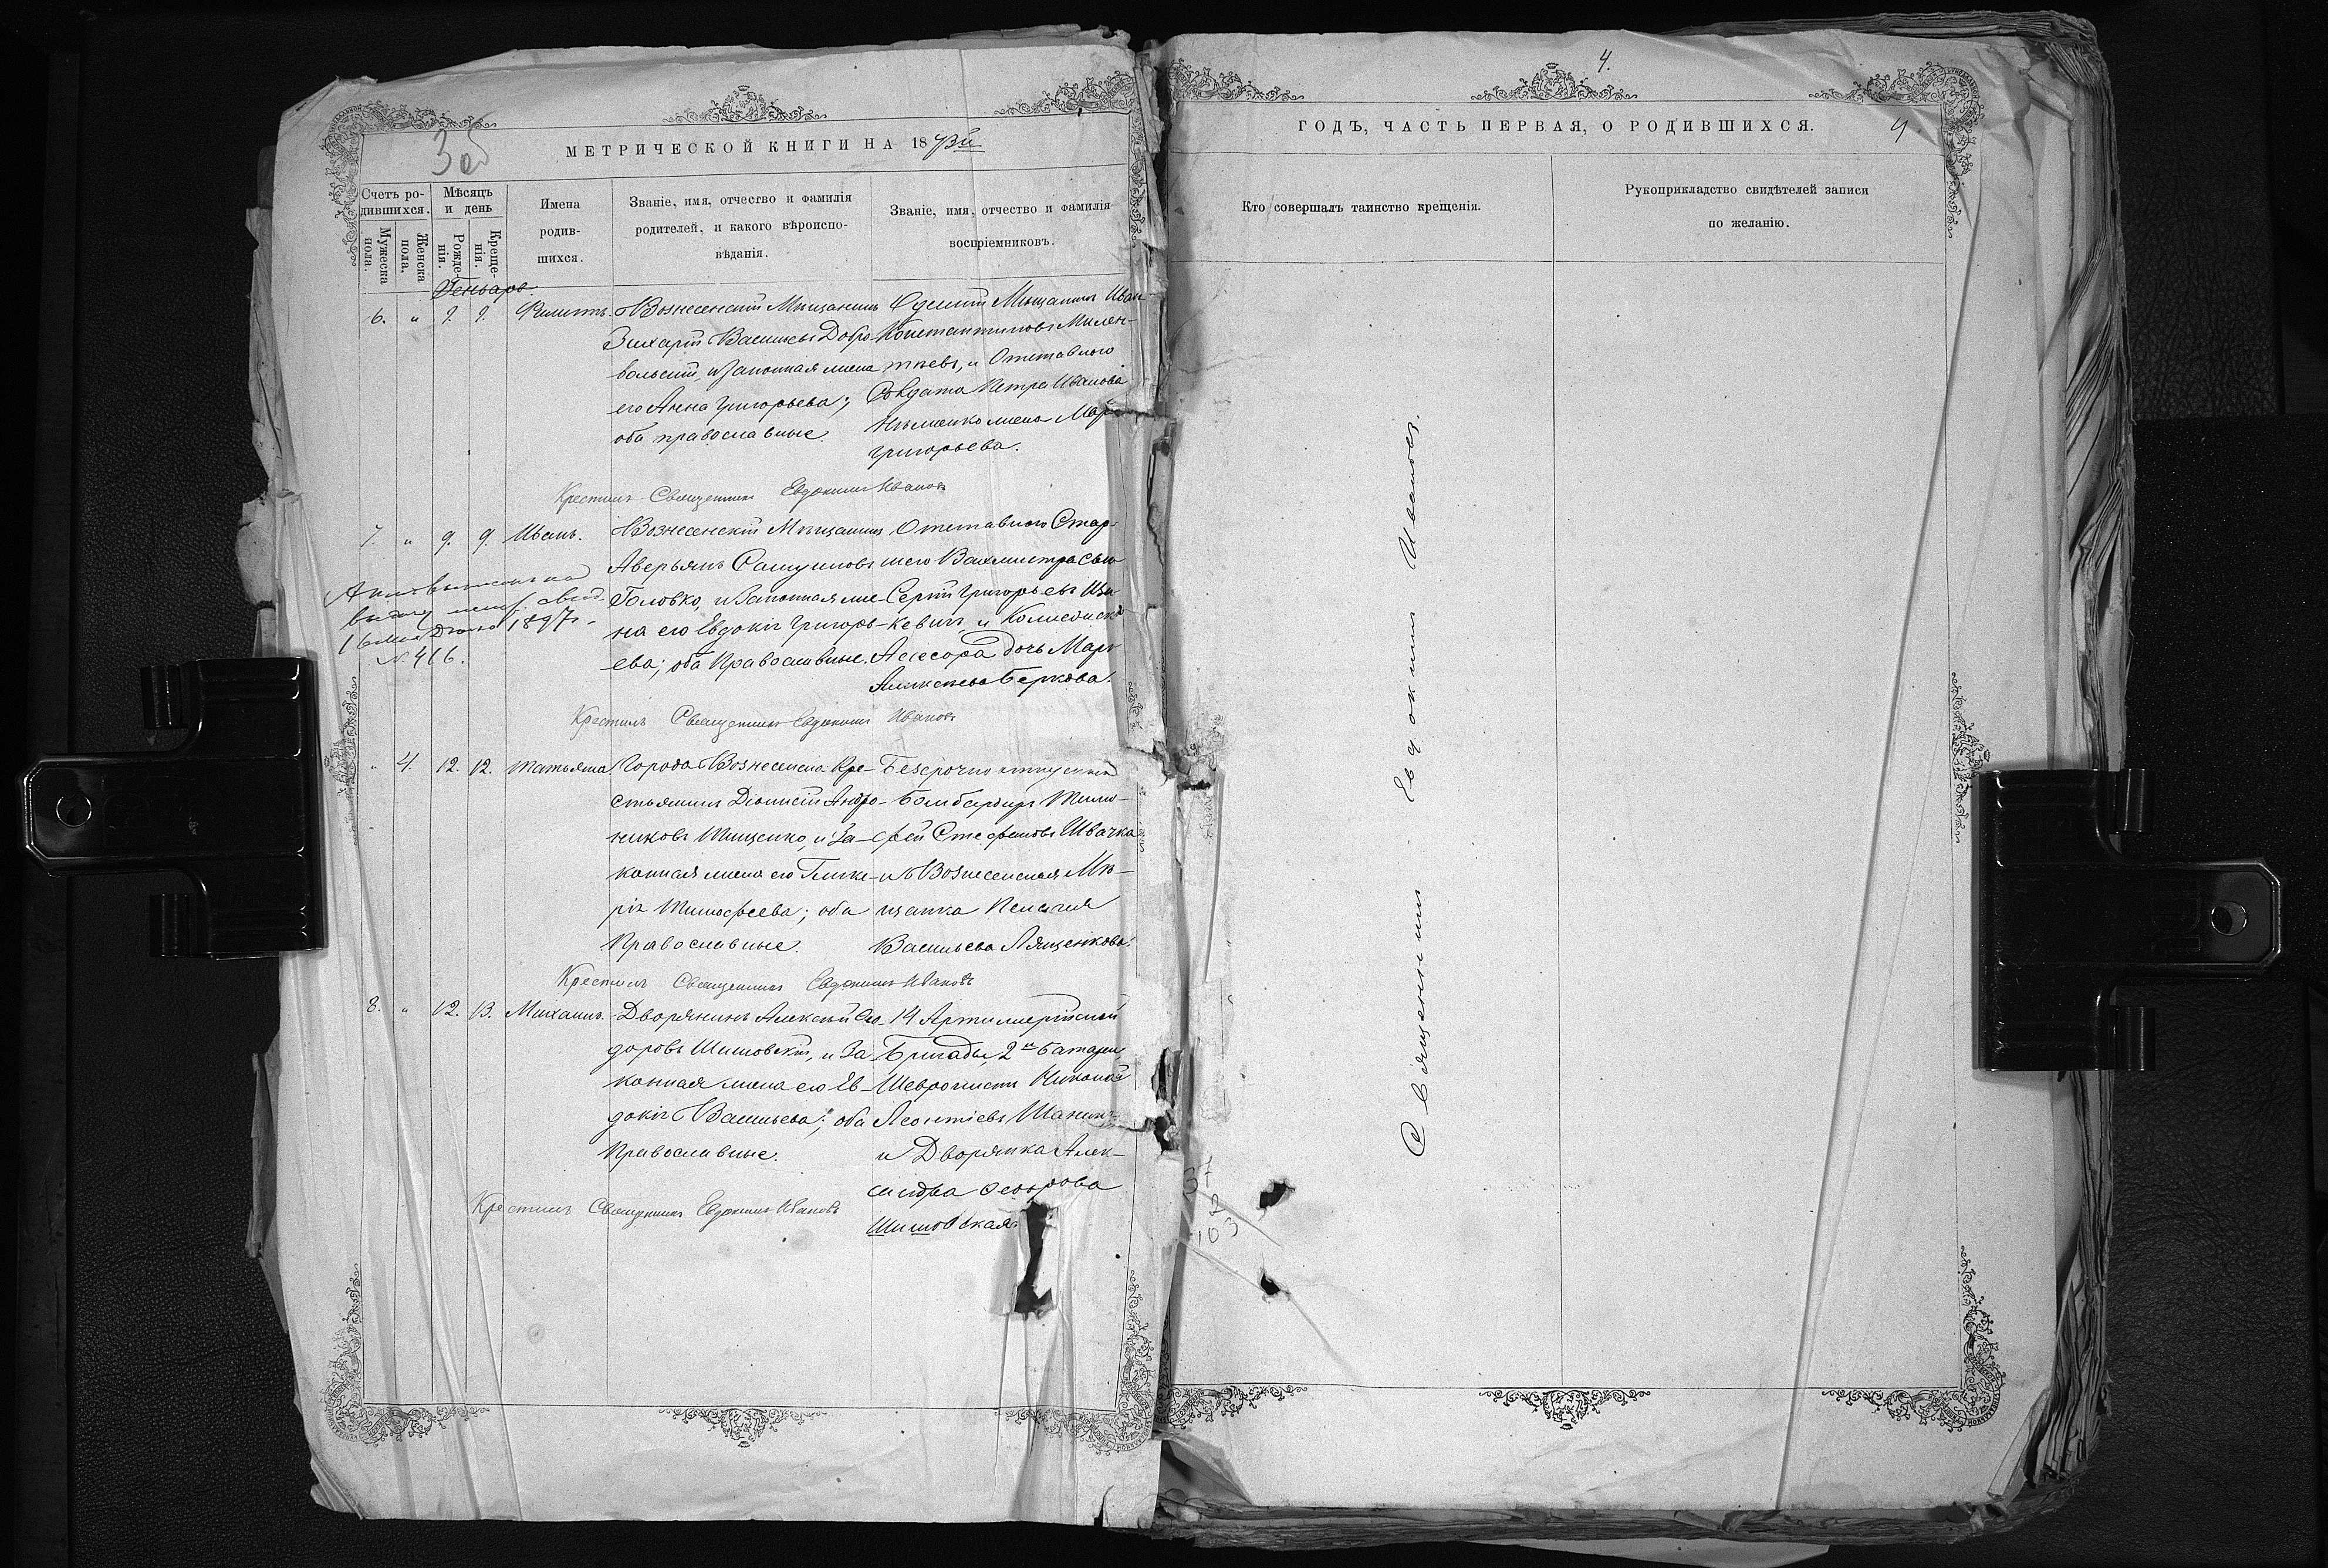 МЕТРИЧЕСКОЙ КНИГИ НА 1873й
Счетъ ро-
дившихся.
Мужеска
пола.
Женска
пола.
Мѣсяцъ
и день
Рожде-
нія.
Креще-
нія.
Имена
родив-
шихся.
Званіе, имя, отчество и фамилія
родителей, и какого вѣроиспо-
вѣданія.
Званіе, имя, отчество и фамилія
воспріемниковъ.
Генварь
6. " 9. 9. Филиппъ.
Вознесенскій Мѣщанинъ
Захарій Васильевъ Добро-
вольскій, и Законная жена
его Анна Григорьева;
оба православные.
Одесскій Мѣщанинъ Иван
Константиновъ
и Отставнаго
Солдата Петра Иванова
жена
Григорьева.
Крестилъ Священникъ Евдокимъ Ивановъ
7. " 9. 9. Иванъ.
Вознесенскій Мѣщанинъ
Аверьянъ Самуиловъ
Головко, и Законная же-
на его Евдокія Григорь-
ева; оба Православные.
Отставнаго Стар-
шего Вахмистра сын
Сергій Григорьевъ
кевичъ, и
Ассесора дочь
Алексѣева Беркова.
1897
N. 416.
Крестилъ Священникъ Евдокимъ Ивановъ
" 4. 12. 12. Татьяна.
Города Вознесенска Кре-
стьянинъ Діонисій Андро-
никовъ Тищенко, и За-
конная жена его Глике-
рія Тимофеева; оба
Православные.
Безсрочно отпускной
Бомбардиръ Тимо-
фей Стефановъ Швачка
и Вознесенская Мѣ-
щанка Пелагея
Васильева Лященкова.
Крестилъ Священникъ Евдокимъ Ивановъ
8. " 12. 13. Михаилъ.
Дворянинъ Алексѣй Ѳео-
доровъ Шишовскій, и За-
конная жена его Ев-
докія Васильева; оба
Православные.
14 Артиллерійской
Бригады, 2й Батареи,
Леонтіевъ
и Дворянка Алек-
сандра Ѳеодорова
Шишовская.
Крестилъ Священникъ Евдокимъ Ивановъ
4.
ГОДЪ, ЧАСТЬ ПЕРВАЯ, О РОДИВШИХСЯ.
4.
Кто совершалъ таинство крещенія.
Рукоприкладство свидѣтелей записи
по желанію.
Священникъ Евдокимъ Ивановъ.
37
2
103